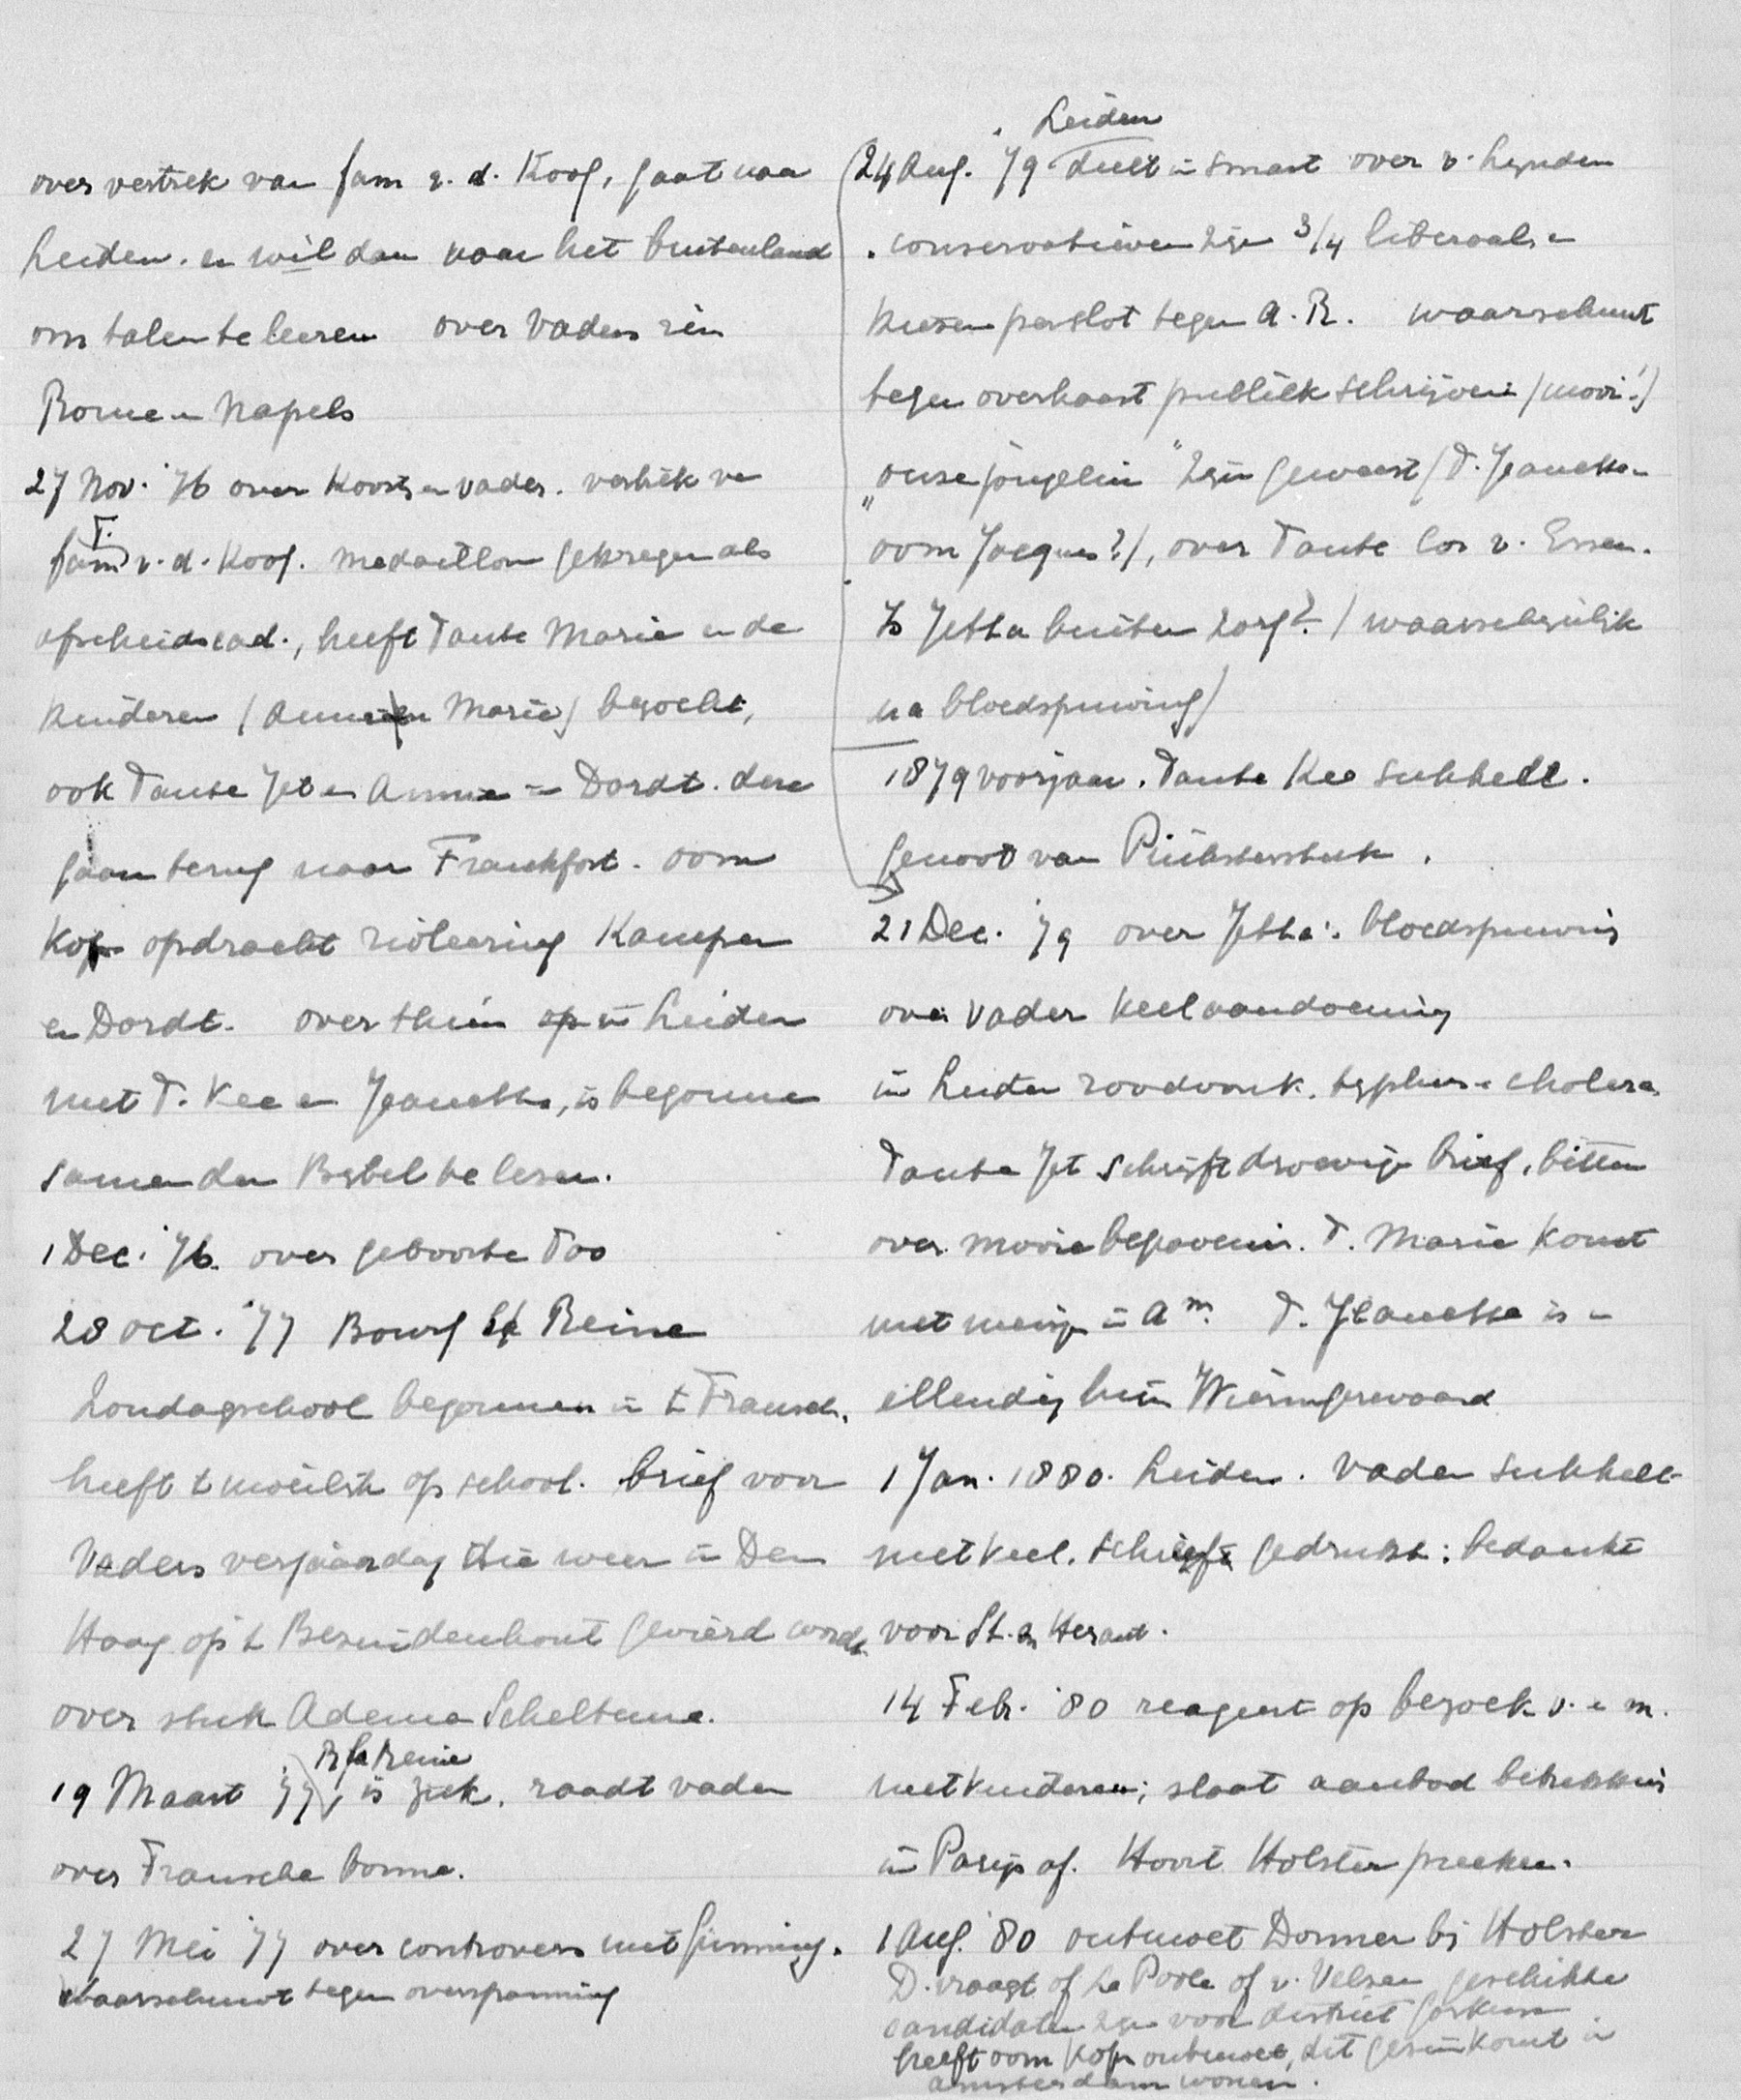 over vertrek van fam v. d. Koog, gaat naar
Leiden. en wil dan naar het buitenland
om talen te leeren over Vaders reis
Rome en Napels
27 Nov. '76 over Koorts en vader. vertrek van
T.
fam v. d. Koog. medaillon gekregen als
afscheidscad., heeft Tante Marie en de
kinderen (Annie en Marie) bezocht,
ook Tante Jet en Annie in Dordt. deze
gaan terug naar Frankfort. oom
Kops opdracht rioleering Kampen
en Dordt. over thuis op in Leiden
met T. Kee en Jeanette, is begonnen
samen den Bijbel te lezen.
1 Dec. '76. over geboorte Too
28 oct. '77 Bourg la Reine
Zondagschool begonnen in 't Fransch,
heeft 't moeilijk op school. brief voor
Vaders verjaardag die weer in Den
Haag op 't Bezuidenhout gevierd wordt
over stuk Adema Scheltema.
B la Reine
19 Maart '77, is ziek. raadt vader
over Fransche bonne.
27 Mei '77 over controvers met Gunning.
waarschuwt tegen overspanning
Leiden
24 Aug. '79 deelt in smart over v. Lynden
conservatieven zijn 3/4 liberaal en
kiezen per slot tegen A.R. waarschuwt
tegen overhaast publiek schrijven (mooi!)
"onze jongelui" zijn geweest (T. Jeanette en
oom Jacques?), over Tante Cor v. Essen.
Is Jetta buiten zorg? (waarschijnlijk
na bloedspuwing)
1879 voorjaar. Tante Kee sukkelt.
genoot van Pinksterstuk.
21 Dec. '79 over Jetta's bloedspuwing
over Vader keelaandoening
in Leiden roodvonk. typhus en cholera
Tante Jet schrijft droevige brief, bitter
over mooie begrafenis. T. Marie komt
met meisje in Am. T. Jeanette is in
ellendig huis Wieringerwaard
1 Jan. 1880. Leiden. Vader sukkelt
met keel. schrijft gedrukt: bedankt
voor St. en Heraut.
14 Feb. '80 reageert op bezoek v. en m.
met kinderen; slaat aanbod betrekking
in Parijs af. Hoort Holster preeken.
1 Aug. '80 ontmoet Donner bij Holster
D. vraagt of La Poole of v. Velzen geschikte
candidaten zijn voor district Gorkum
heeft oom Kops ontmoet, dit gezin komt in
Amsterdam wonen.